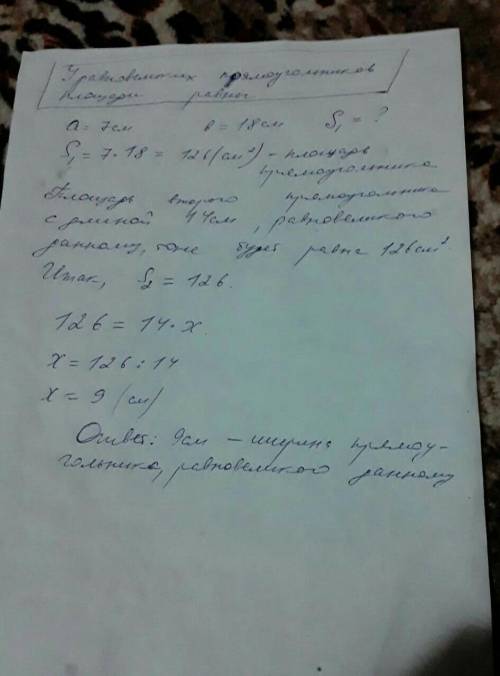 У равновеликих прямоугольников
площади равны
a = 7см в = 18см S₁ = ?
S₁ = 7·18 = 126 (см²) - площадь
прямоугольника
Площадь второго прямоугольника
с длиной 14см, равновеликого
данному, тоже будет равна 126см²
Итак, S₂ = 126.
126 = 14·x
x = 126 : 14
x = 9 (см)
Ответ: 9см – ширина прямоу-
гольника, равновеликого данному